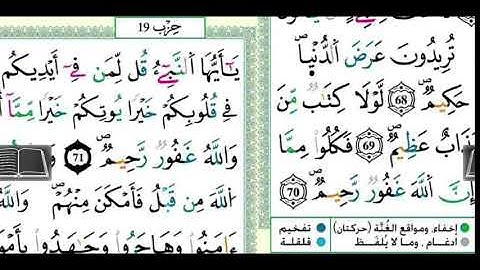 تُرِيدُونَ عَرَضَ ٱلدُّنْيَا
حَكِيمٌ 68 لَّوْلَا كِتَٰبٌ مِّنَ
ذَابٌ عَظِيمٌ 69 فَكُلُوا۟ مِمَّا
إِنَّ ٱللَّهَ غَفُورٌ رَّحِيمٌ 70
إخفاء، ومواقع الغنّة (حركتان) تفخيم
ادغام، وما لا يلفظ قلقلة
حِزْب 19
يَٰٓأَيُّهَا ٱلنَّبِىُّ قُل لِّمَن فِىٓ أَيْدِيكُم
فِى قُلُوبِكُمْ خَيْرًا يُؤْتِكُمْ خَيْرًا مِّمَّآ
وَٱللَّهُ غَفُورٌ رَّحِيمٌ 71
ٱللَّهَ مِن قَبْلُ فَأَمْكَنَ مِنْهُمْ وَٱللَّهُ
ءَامَنُوا۟ وَهَاجَرُوا۟ وَجَٰهَدُوا۟ بِأَمْوَ